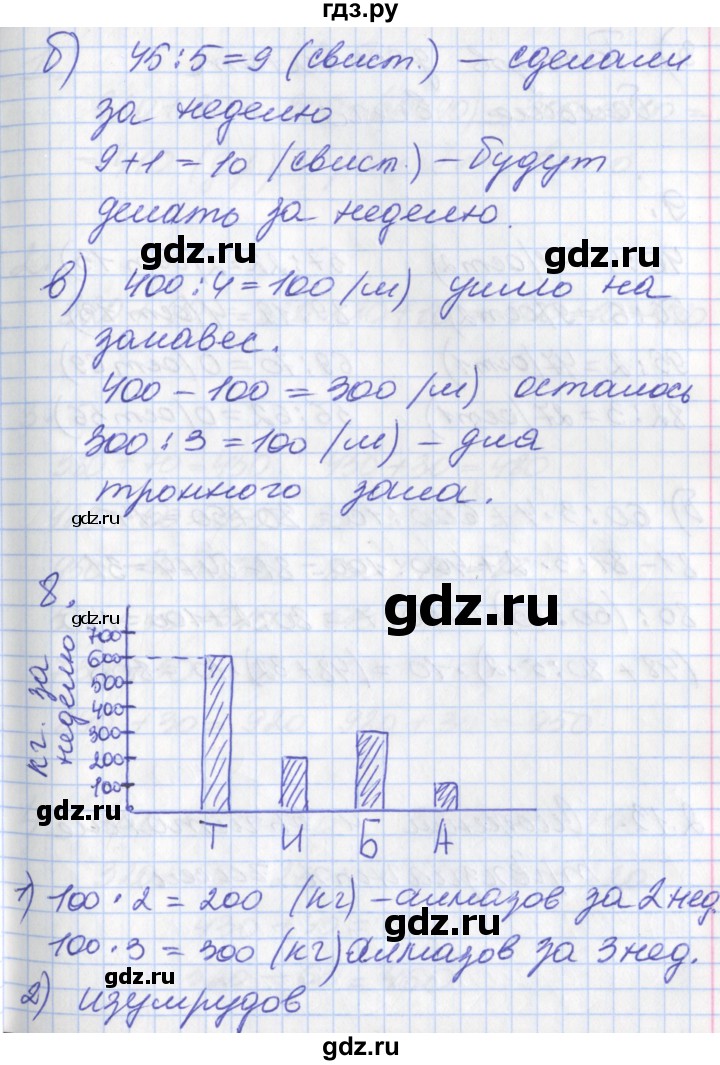 гдз.ру
б) 45:5=9 (свист.) – сделали
за неделю
9+1=10 (свист.) – будут
делать за неделю.
gdz.ru
gdz.ru
в) 400:4=100 (м) ушло на
занавес.
400-100=300 (м) осталось
300:3=100 (м) – для
тронного зала.
gdz.ru
8.
gdz.ru
gdz.ru
кг. за
неделю
700
600
500
400
300
200
100
gdz.ru
Т И Б А
1) 100·2=200 (кг) – алмазов за 2 нед
gdz.ru
100·3=300 (кг) алмазов за 3 нед.
gdz.ru
2) изумрудов
gdz.ru
gdz.ru